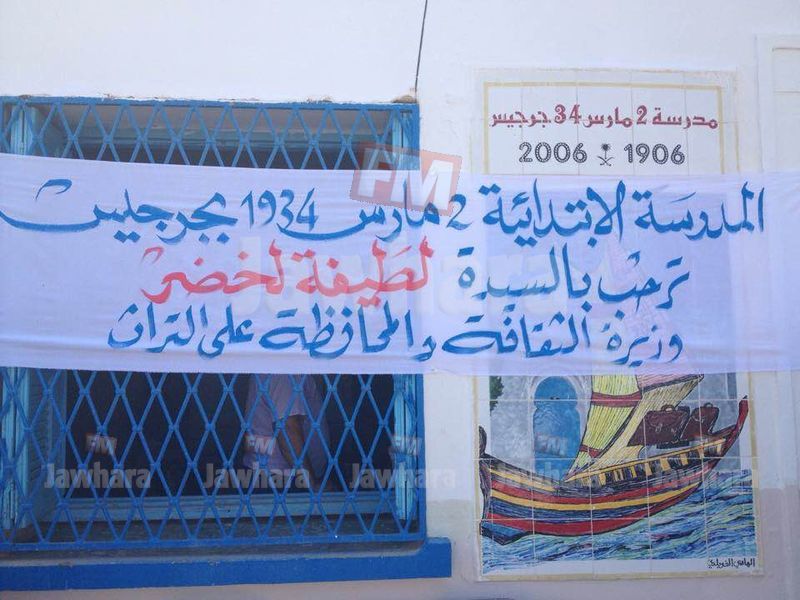 مدرسة 2 مارس 34 جرجيس
2006 1906
المدرسة الابتدائية 2 مارس 1934 بجرجيس
ترحب بالسيدة لطيفة لخضر
وزيرة الثقافة والمحافظة على التراث
FM
Jawhara
FM
Jawhara
FM
Jawhara
FM
Jawhara
FM
Jawhara